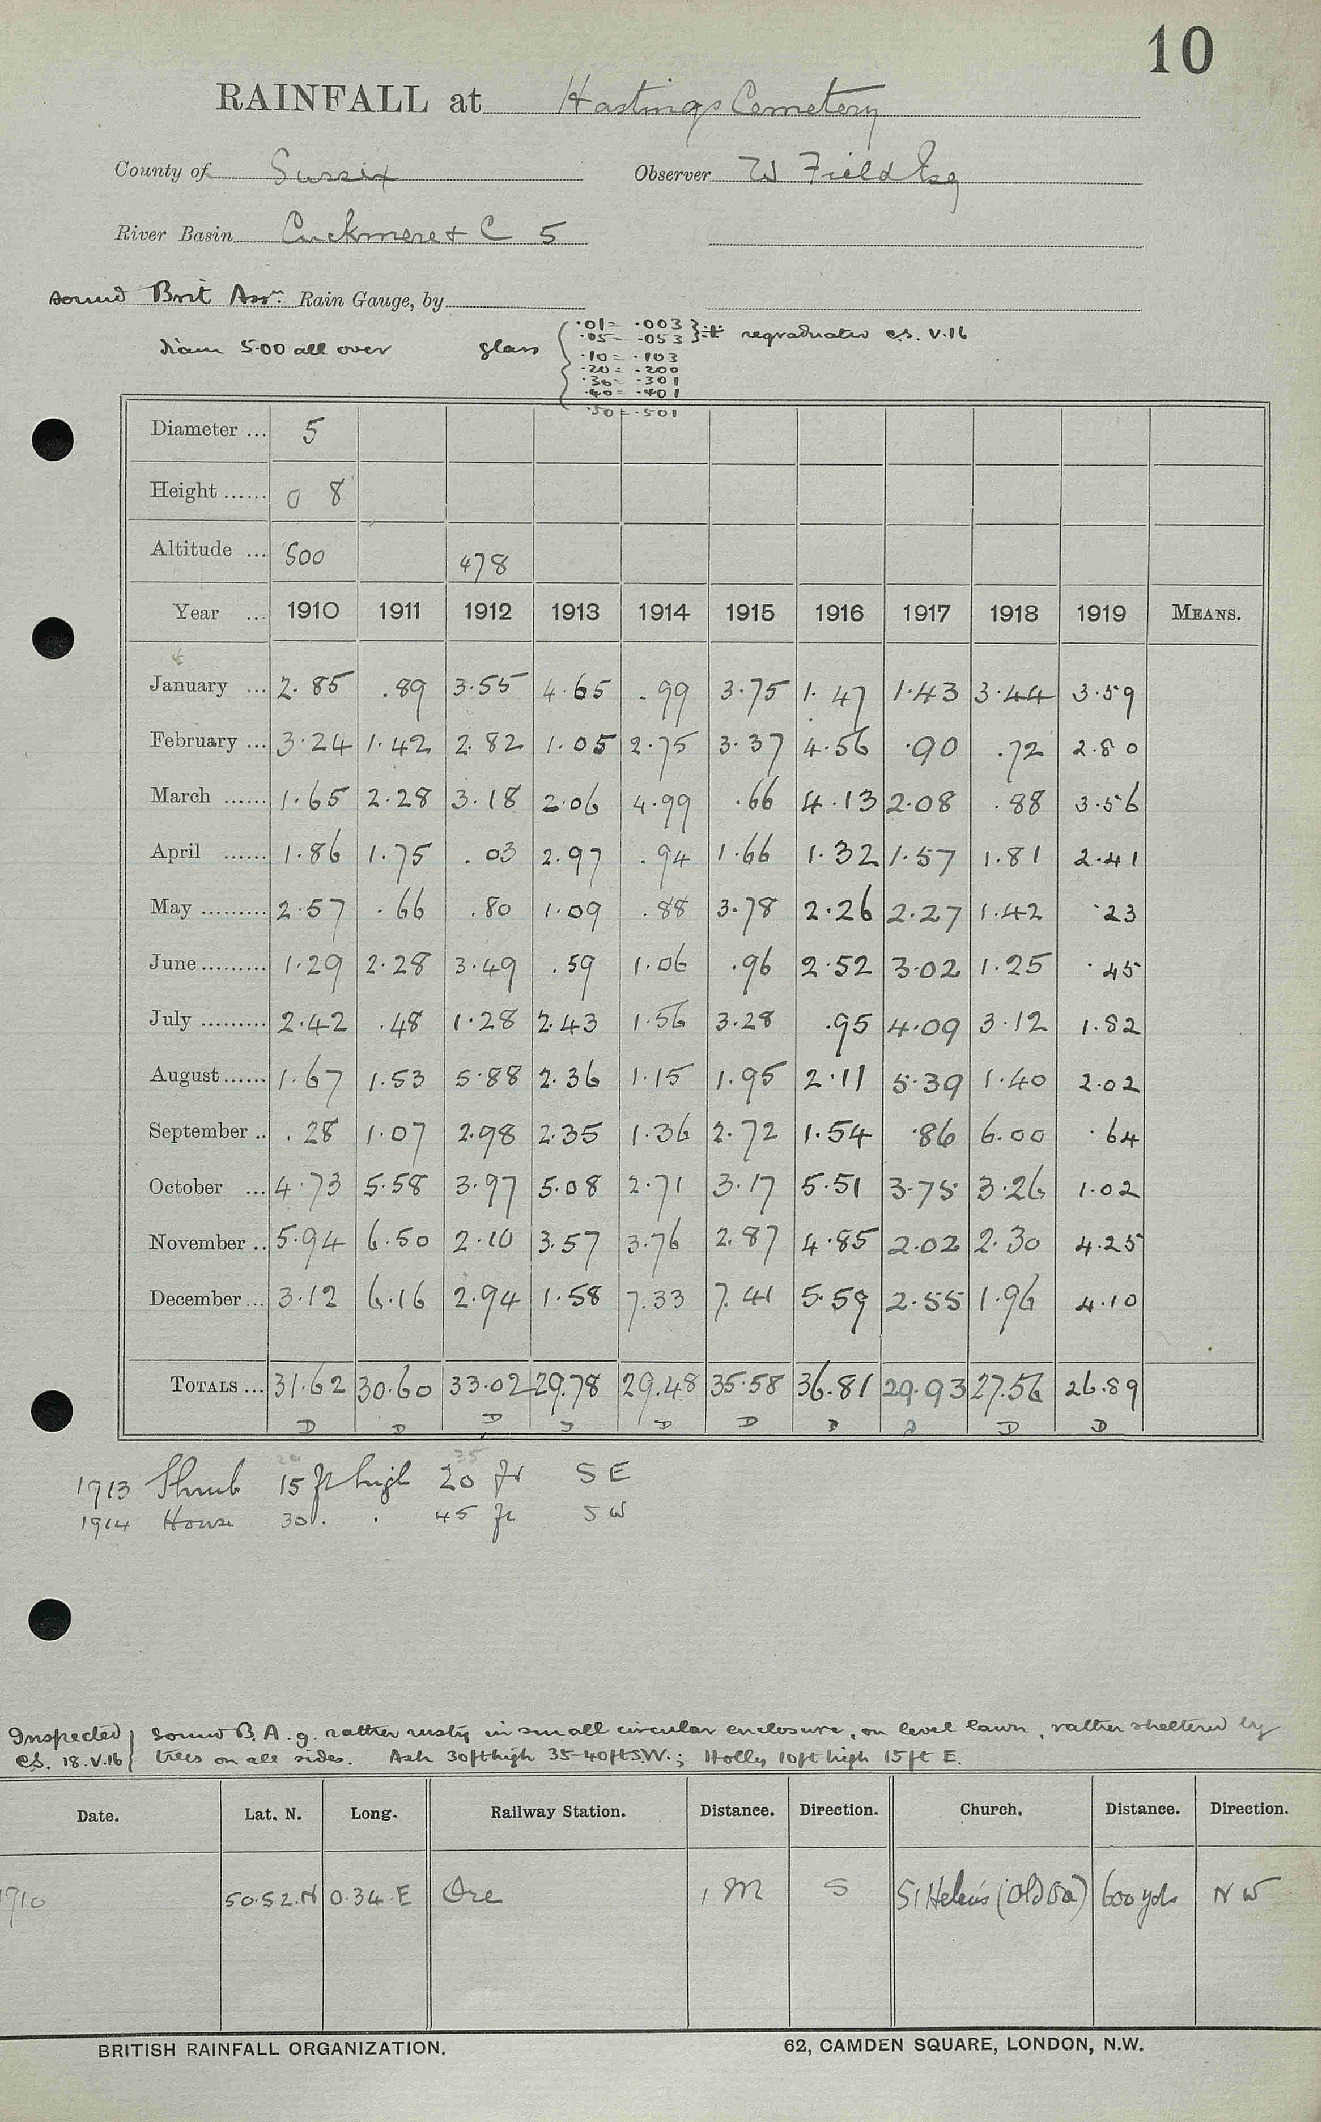 10
RAINFALL at Hastings Cemetery
County of Sussex Observer W Field Esq
River Basin Cuckmere & C 5
Sound Brit Assn. Rain Gauge, by
diam 5.00 all over glass { .01= .003 } regraduated C.S. V.16
.05= .053
.10= .103
.20= .200
.30= .301
.40= .401
.50=.501
Diameter ... 5
Height ...... 0 8
Altitude ... 500 478
Year ... 1910 1911 1912 1913 1914 1915 1916 1917 1918 1919 MEANS.
January ... 2.85 .89 3.55 4.65 .99 3.75 1.47 1.43 3.44 3.59
February ... 3.24 1.42 2.82 1.05 2.75 3.37 4.56 .90 .72 2.80
March ...... 1.65 2.28 3.18 2.06 4.99 .66 4.13 2.08 .88 3.56
April ...... 1.86 1.75 .03 2.97 .94 1.66 1.32 1.57 1.81 2.41
May ......... 2.57 .66 .80 1.09 .88 3.78 2.26 2.27 1.42 .23
June ......... 1.29 2.28 3.49 .59 1.06 .96 2.52 3.02 1.25 .45
July ......... 2.42 .48 1.28 2.43 1.56 3.28 .95 4.09 3.12 1.82
August ...... 1.67 1.53 5.88 2.36 1.15 1.95 2.11 5.39 1.40 2.02
September .. .28 1.07 2.98 2.35 1.36 2.72 1.54 .86 6.00 .64
October ... 4.73 5.58 3.97 5.08 2.71 3.17 5.51 3.75 3.26 1.02
November .. 5.94 6.50 2.10 3.57 3.76 2.87 4.85 2.02 2.30 4.25
December ... 3.12 6.16 2.94 1.58 7.33 7.41 5.59 2.55 1.96 4.10
TOTALS ... 31.62 30.60 33.02 29.78 29.48 35.58 36.81 29.93 27.56 26.89
D D D D D D D D D D
20 35
1913 Shrub 15 ft high 20 ft SE
1914 House 30 . . 45 ft SW
Inspected } Sound B.A.g. rather rusty in small circular enclosure, on level lawn, rather sheltered by
C.S. 18.V.16 } trees on all sides. Ash 30ft high 35-40ft S.W.; Holly 10ft high 15ft E.
Date. Lat. N. Long. Railway Station. Distance. Direction. Church. Distance. Direction.
1910 50.52.N 0.34.E Ore 1 M S St Helen's (Old Ora) 600 yds NW
BRITISH RAINFALL ORGANIZATION. 62, CAMDEN SQUARE, LONDON, N.W.